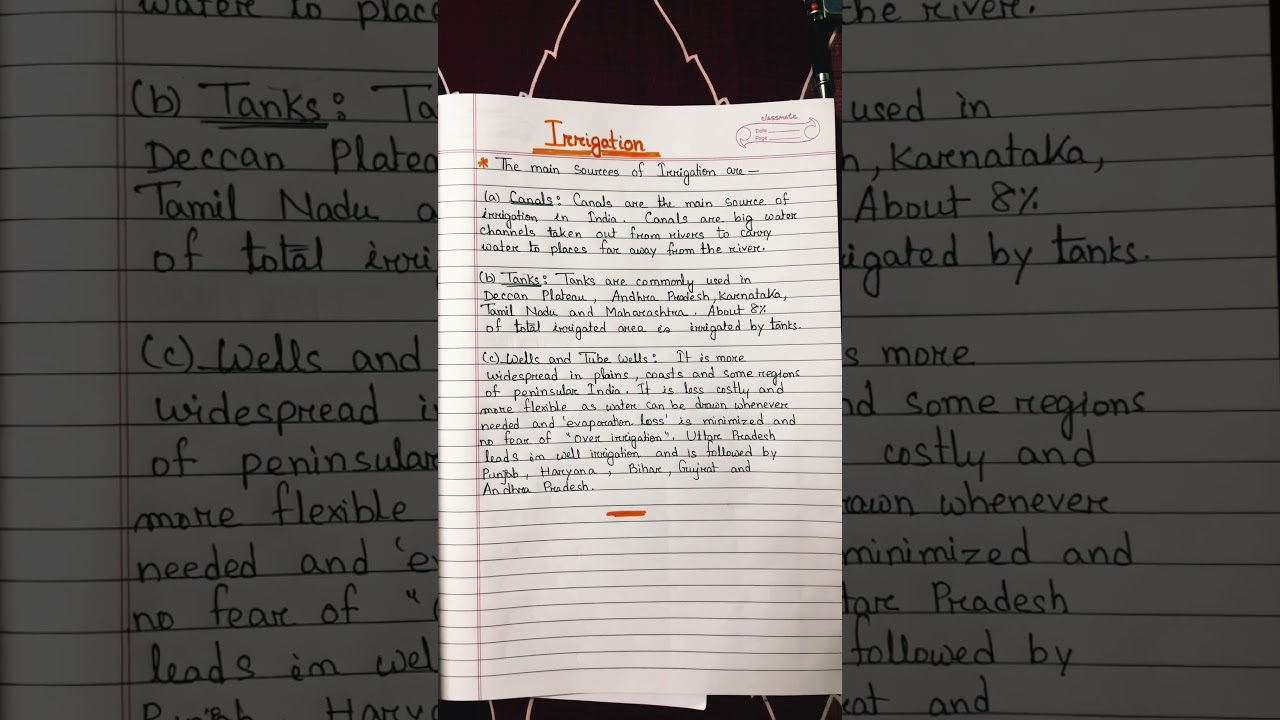 classmate
Date
Page
Irrigation
* The main sources of Irrigation are —
(a) Canals: Canals are the main source of
irrigation in India. Canals are big water
channels taken out from rivers to carry
water to places far away from the river.
(b) Tanks: Tanks are commonly used in
Deccan Plateau, Andhra Pradesh, Karnataka,
Tamil Nadu and Maharashtra. About 8%
of total irrigated area is irrigated by tanks.
(c) Wells and Tube wells: It is more
widespread in plains, coasts and some regions
of peninsular India. It is less costly and
more flexible as water can be drawn whenever
needed and 'evaporation loss' is minimized and
no fear of "over irrigation". Uttar Pradesh
leads in well irrigation and is followed by
Punjab, Haryana, Bihar, Gujrat and
Andhra Pradesh.